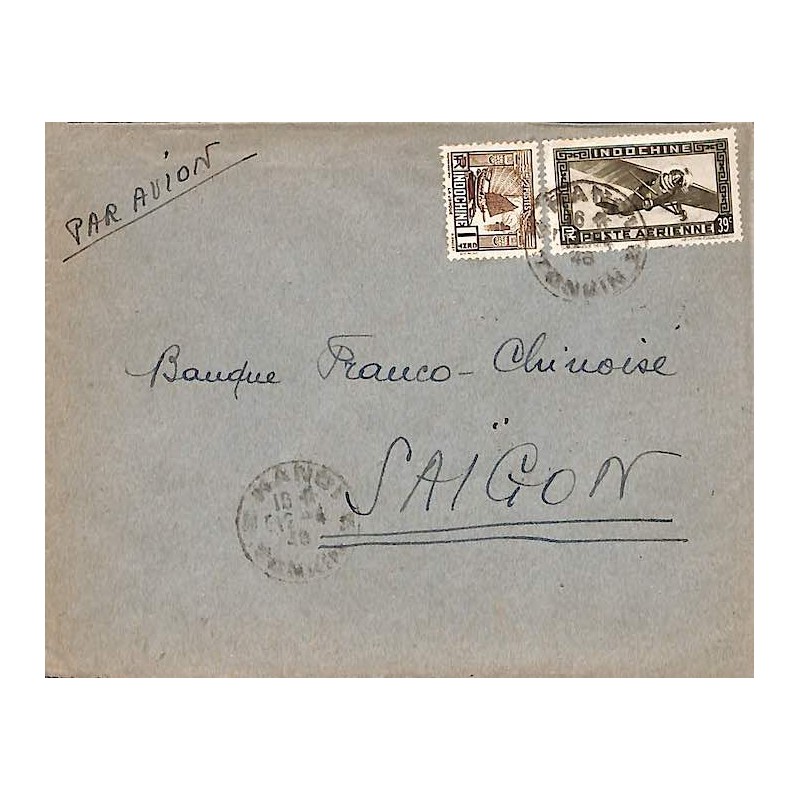 PAR AVION
INDOCHINE
1
INDOCHINE
POSTE AERIENNE
39c
RF
TONKIN
Banque Franco-Chinoise
SAÏGON
HANOI